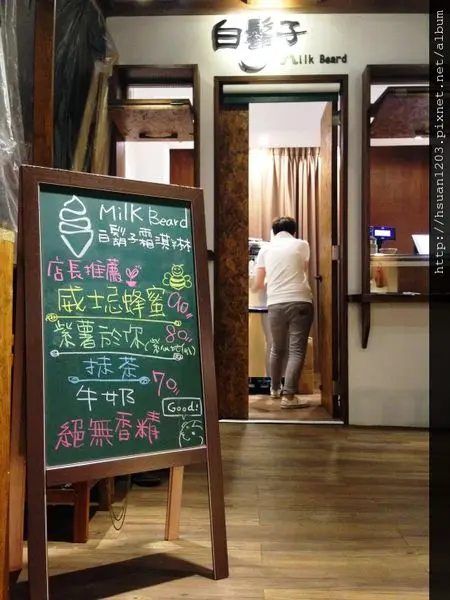 白鬍子
Milk Beard
Milk Beard
白鬍子霜淇淋
店長推薦
威士忌蜂蜜 90
紫薯於你 80
抹茶
牛奶 70
Good!
絕無香精
http://hsuan1203.pixnet.net/album